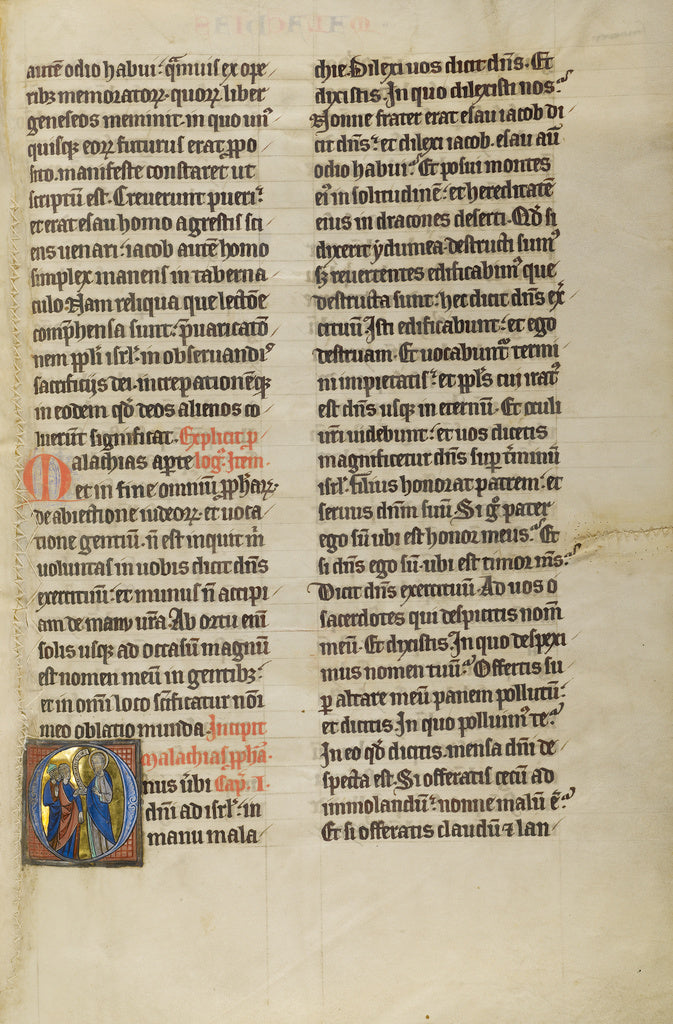 autē odio habui· qͣmuis ex ope
ribꝫ memoratoꝝ· quoꝝ liber
geneseos meminit· in quo un᷒
quisqꝫ eoꝝ futurus erat ꝓpo
sito· manifeste constaret ut
scriptū est· Creuerunt pueri·
et erat esau homo agrestis sci
ens uenari· iacob autē homo
simplex manens in taberna
culo· Nam reliqua que lectōe
comp̄hensa sunt· p̄uaricatō
nem ppl̓i isrl̓· in obseruandis
sacrificijs dei· increpationēqꝫ
in eodem qd̓ deos alienos co
luerūt significat· Explicit p
Malachias aperte log᷒· Item·
et in fine omniū ꝓphaꝝ·
de abiectione iudeoꝝ· et uoca
tione gentiū· n̄ est inquit m̓
uoluntas in uobis dicit dn̄s
exercituū· et munus n̄ accipi
am de manu ur̄a· Ab ortu eni̅
solis usqꝫ ad occasū magnū
est nomen meū in gentibꝫ·
et in omi̅ loco sc̄ificatur noi̅
meo oblatio munda· Incipit
malachias ꝓpha·
Onus ūbi Cap̄· I·
dn̄i ad isrl̓· in
manu mala
chie· Dilexi uos dicit dn̄s· Et
dixistis· In quo dilexisti nos·
Nonne frater erat esau iacob di
cit dn̄s· et dilexi iacob· esau aū
odio habui· Et posui montes
ei᷒ in solitudinē· et hereditatē
eius in dracones deserti· Qd̓ si
dixerit ydumea· destructi sum᷒
sꝫ reuertentes edificabim᷒ que
destructa sunt· hec dicit dn̄s ex̓
cituū· Isti edificabunt· et ego
destruam· Et uocabunt᷑ termi
ni impietatis· et ppl̓s cui irat᷒
est dn̄s usqꝫ in eternū· Et oculi
ur̄i uidebunt· et uos dicetis
magnificetur dn̄s suꝑ t̓minū
isrl̓· Filius honorat patrem· et
seruus dn̄m suū· Si gͦ pater
ego sū ubi est honor meus· Et
si dn̄s ego sū· ubi est timor m̄s·
Dicit dn̄s exercituū· Ad uos o
sacerdotes qui despicitis nom̄
meū· Et dixistis· In quo despexi
mus nomen tuū· Offertis su
ꝑ altare meū panem pollutū·
et dicitis· In quo polluim᷒ te·
In eo qd̓ dicitis· mensa dn̄i de
specta est· Si offeratis cecū ad
immolandū· nonne malū ē·
Et si offeratis claudū ⁊ lan